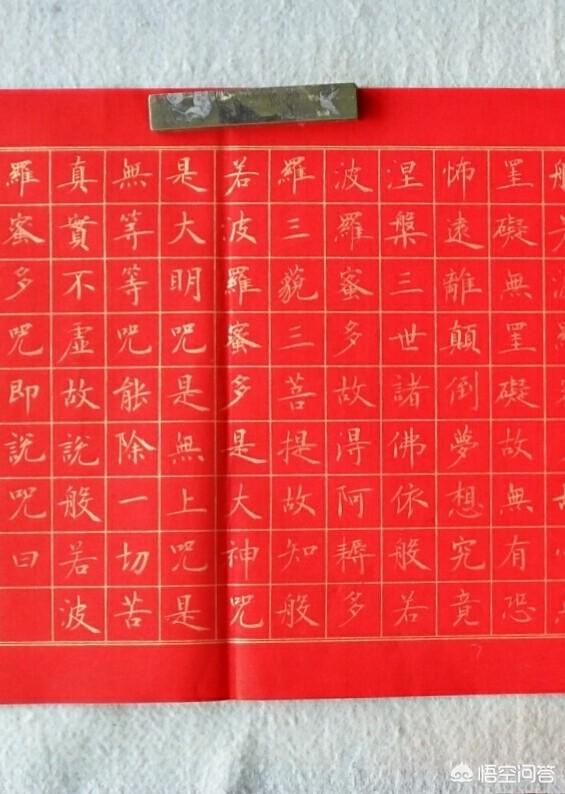 罣礙無罣礙故無有恐
怖遠離顛倒夢想究竟
涅槃三世諸佛依般若
波羅蜜多故得阿耨多
羅三藐三菩提故知般
若波羅蜜多是大神咒
是大明咒是無上咒是
無等等咒能除一切苦
真實不虛故說般若波
羅蜜多咒即說咒曰
悟空问答